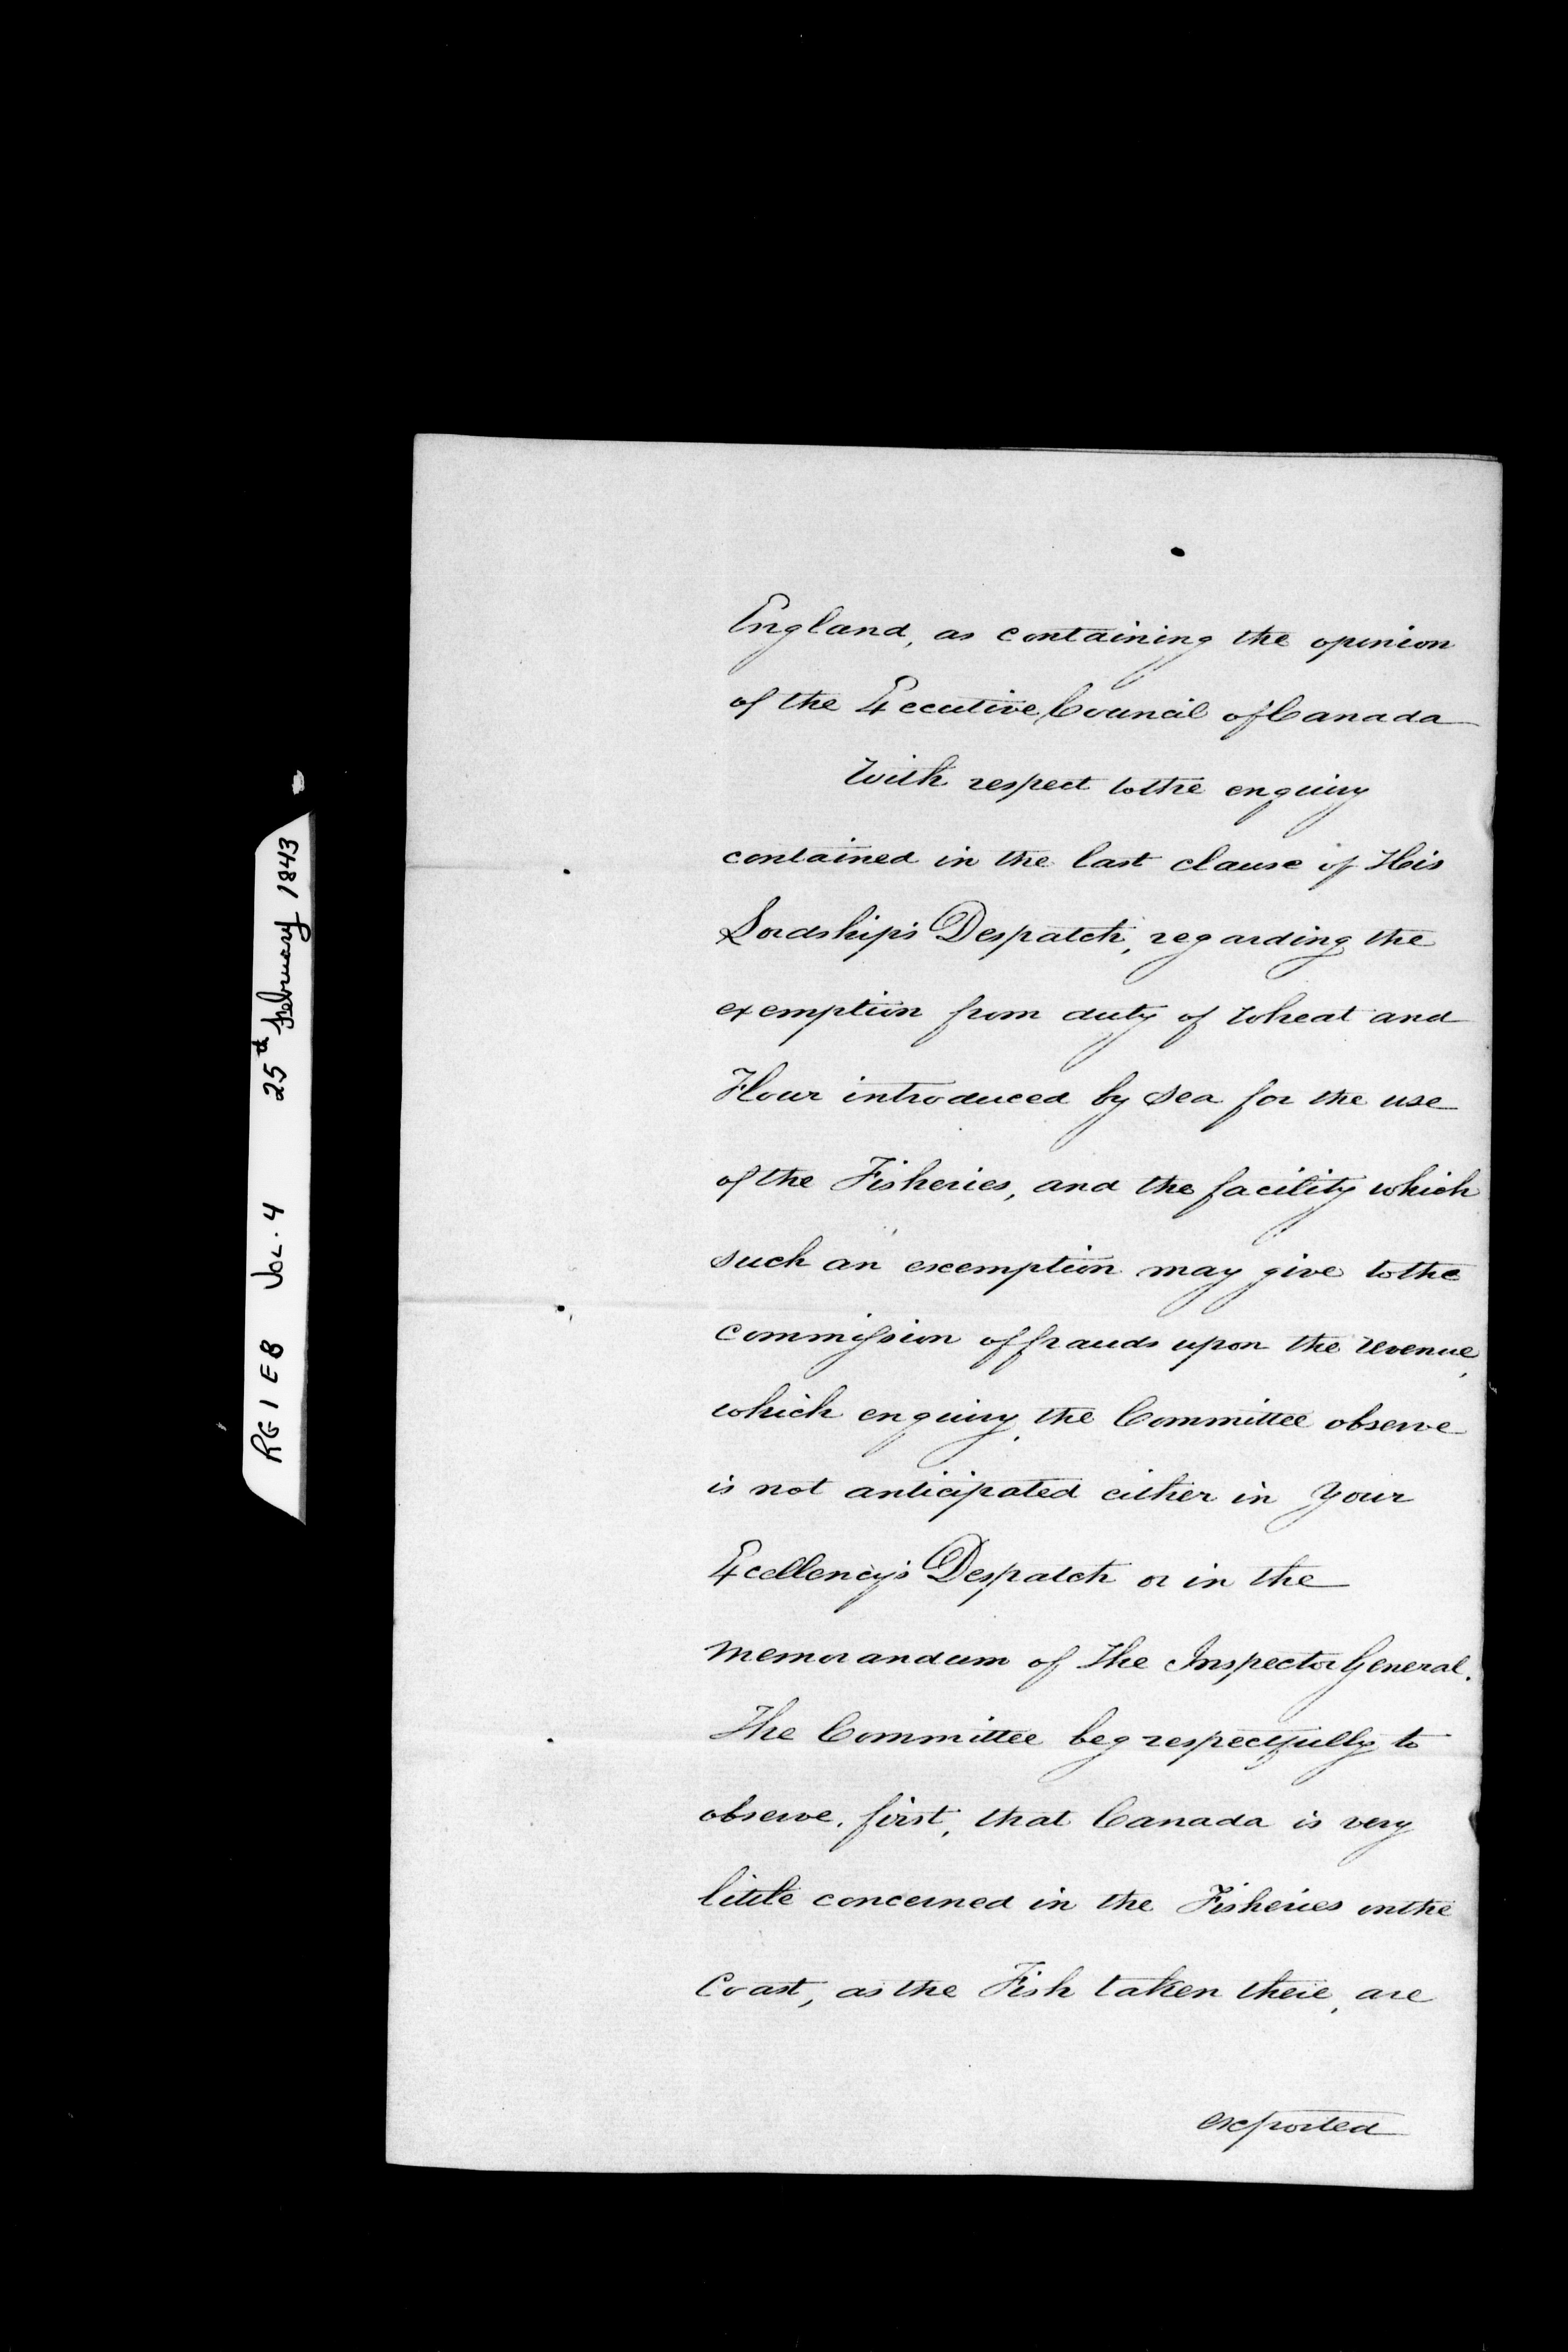 RG 1 E 8 VOL. 4 25th February 1843
England, as containing the opinion
of the Executive Council of Canada
With respect to the enquiry
contained in the last clause of His
Lordship's Despatch, regarding the
exemption from duty of Wheat and
Flour introduced by Sea for the use
of the Fisheries, and the facility which
such an exemption may give to the
commission of frauds upon the revenue,
which enquiry, the Committee observe
is not anticipated either in Your
Excellency's Despatch or in the
memorandum of The Inspector General.
The Committee beg respectfully to
observe, first, that Canada is very
little concerned in the Fisheries on the
Coast, as the Fish taken there, are
exported